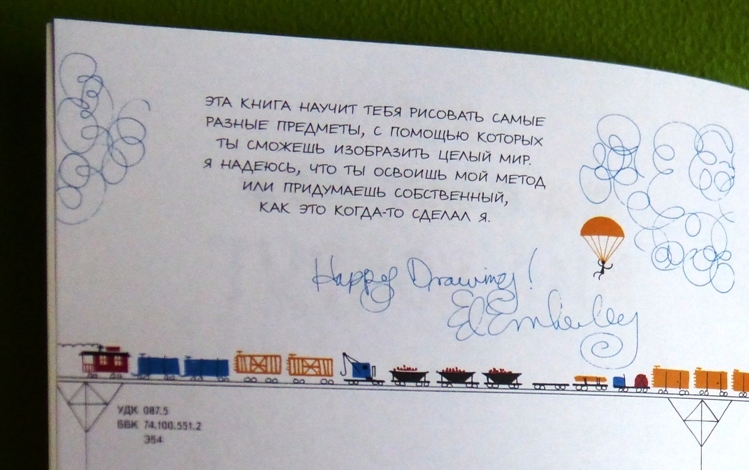 ЭТА КНИГА НАУЧИТ ТЕБЯ РИСОВАТЬ САМЫЕ
РАЗНЫЕ ПРЕДМЕТЫ, С ПОМОЩЬЮ КОТОРЫХ
ТЫ СМОЖЕШЬ ИЗОБРАЗИТЬ ЦЕЛЫЙ МИР.
Я НАДЕЮСЬ, ЧТО ТЫ ОСВОИШЬ МОЙ МЕТОД
ИЛИ ПРИДУМАЕШЬ СОБСТВЕННЫЙ,
КАК ЭТО КОГДА-ТО СДЕЛАЛ Я.
Happy Drawing!
Ed Emberley
УДК 087.5
ББК 74.100.551.2
Э54